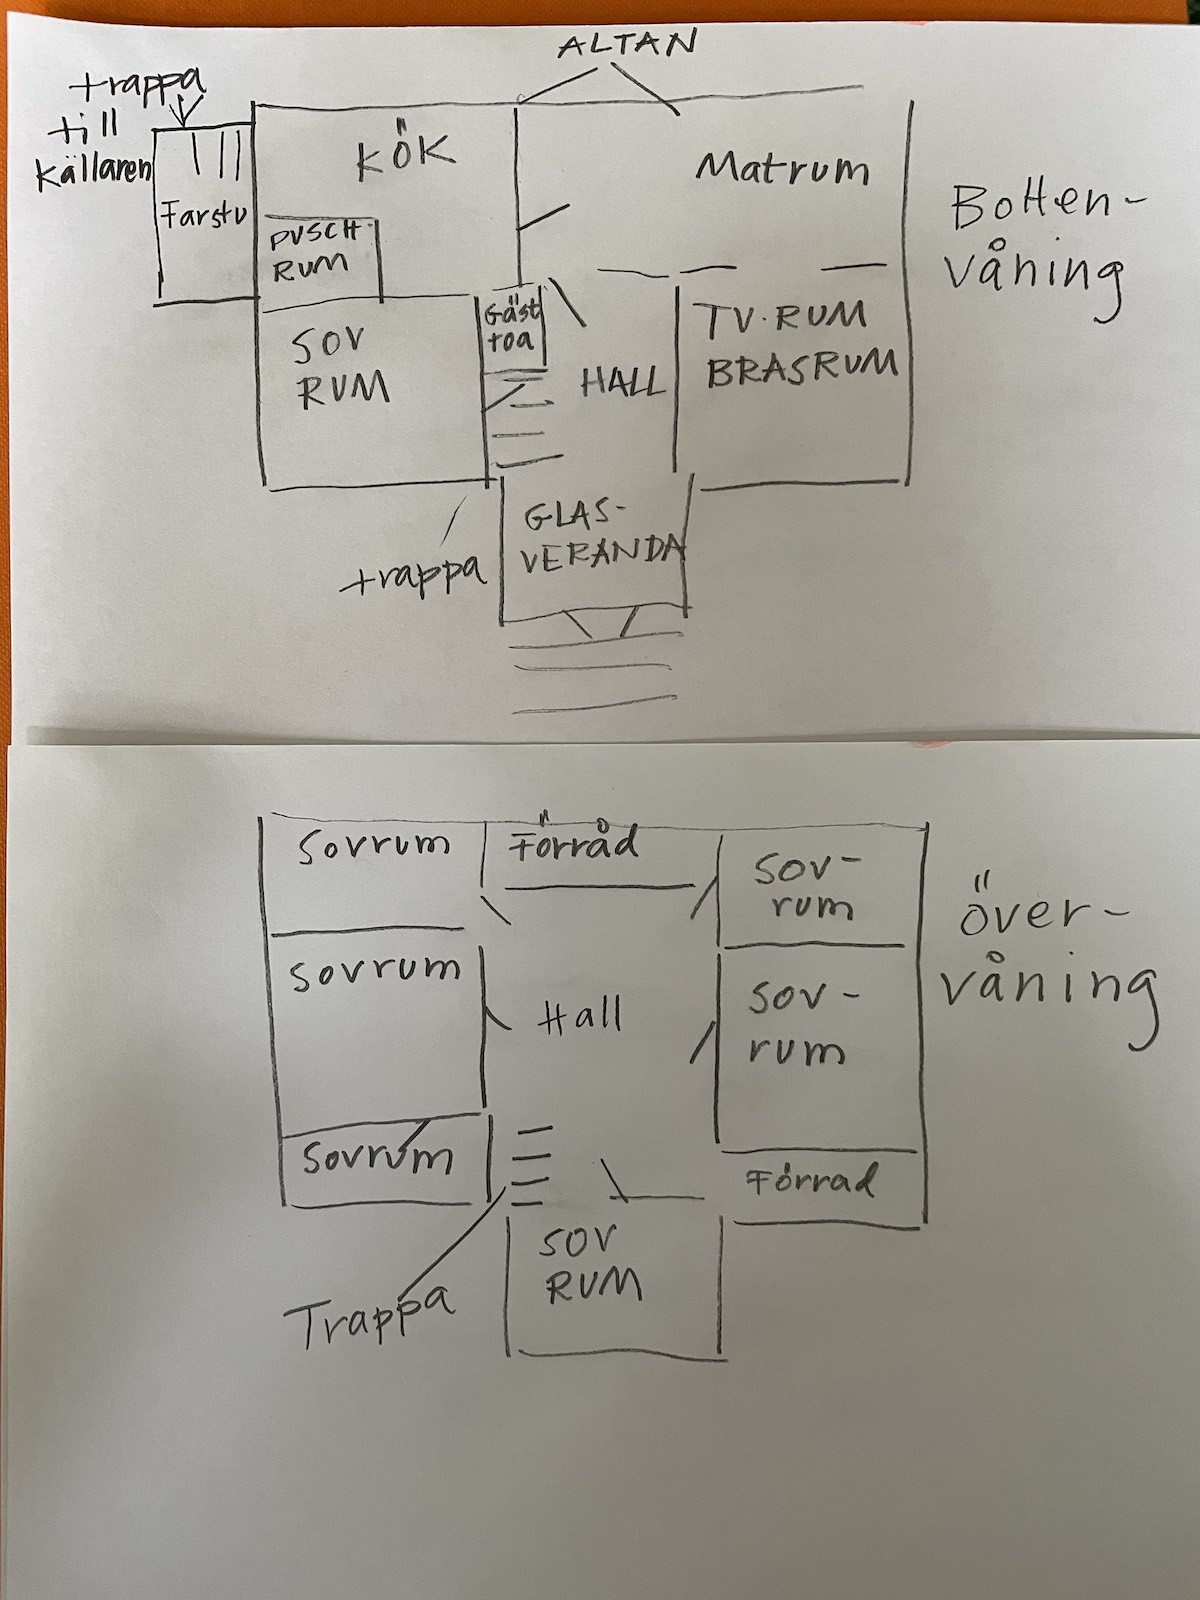 ALTAN
trappa
till
källaren
KÖK
Matrum
Farstu
DUSCH
RUM
Botten-
våning
Gäst
toa
SOV
RUM
TV.RUM
BRASRUM
HALL
GLAS-
VERANDA
trappa
Sovrum
Förråd
Sov-
rum
Över-
våning
Sovrum
Hall
Sov-
rum
Sovrum
Förrad
SOV
RUM
Trappa